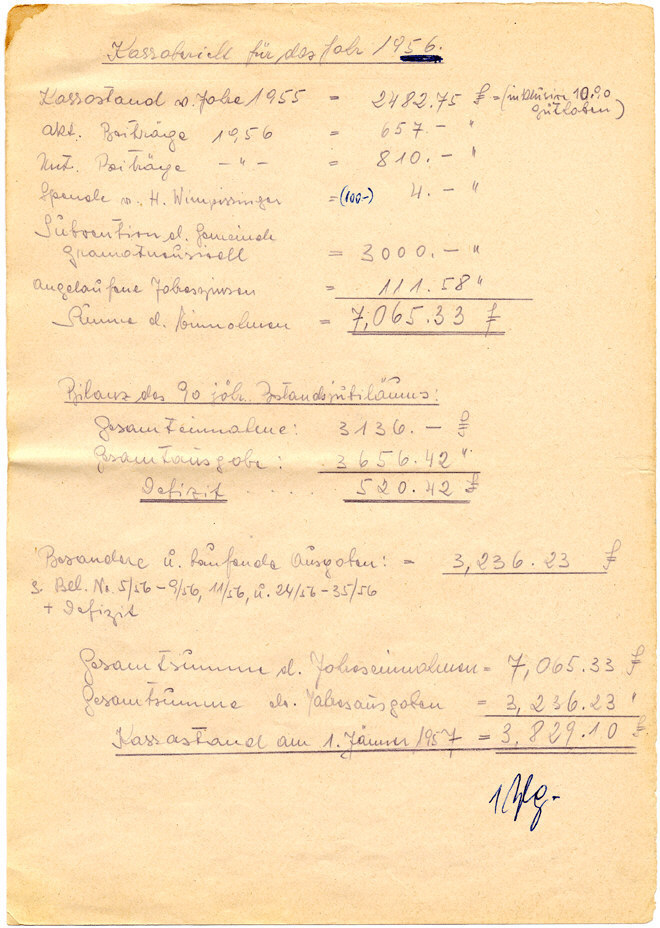 Kassabericht für das Jahr 1956.
Kassastand v. Jahre 1955 = 2482.75 S = (inklusive 10.90
Guthaben)
akt. Beiträge 1956 = 657.- "
Unt. Beiträge -"- = 810.- "
Spende v. H. Wimpissinger =(100-) 4.- "
Subvention d. Gemeinde
Gramatneusiedl = 3000.- "
angelaufene Jahreszinsen = 111.58 "
Summe d. Einnahmen = 7,065.33 S
Bilanz des 90 jähr. Bestandsjubiläums:
Gesamteinnahme: 3136.- S
Gesamtausgabe: 3656.42 "
Defizit .... 520.42 S
Besondere u. laufende Ausgaben: = 3,236.23 S
s. Bel. No. 5/56 - 9/56, 11/56, u. 24/56 - 35/56
+ Defizit
Gesamtsumme d. Jahreseinnahmen = 7,065.33 S
Gesamtsumme der Jahresausgaben = 3,236.23 "
Kassastand am 1. Jänner 1957 = 3,829.10 S